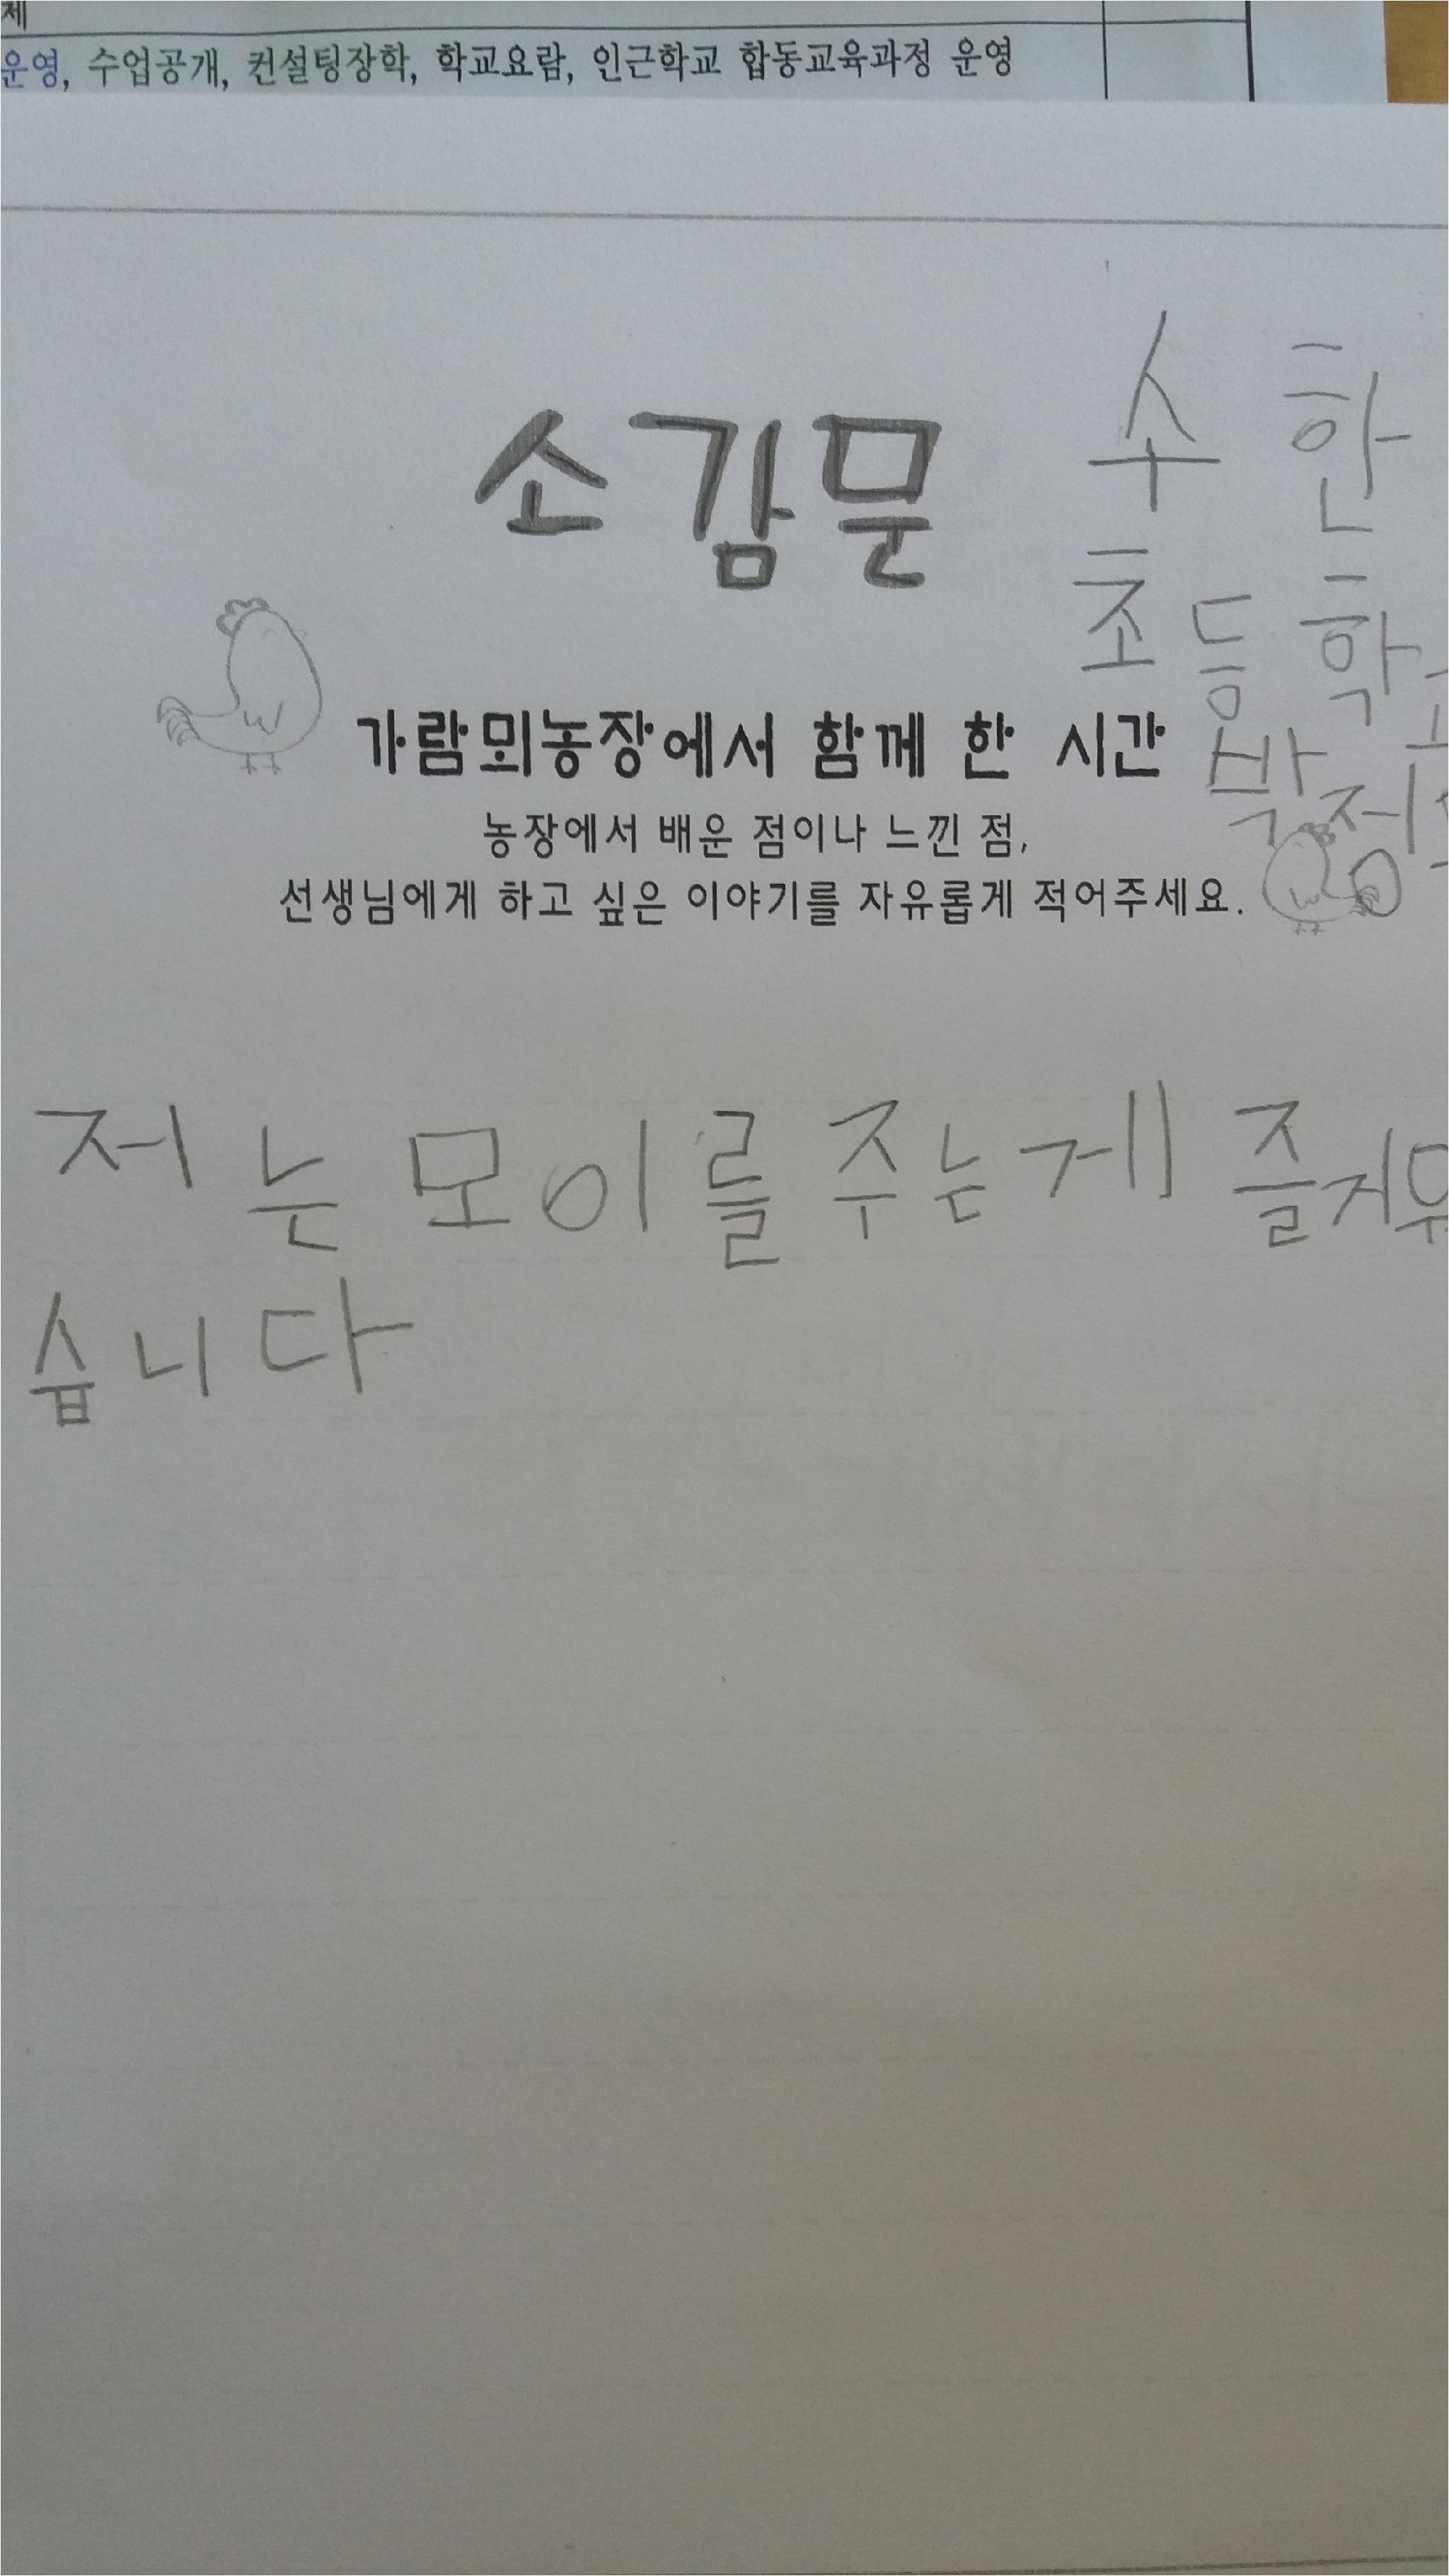 제
운영, 수업공개, 컨설팅장학, 학교요람, 인근학교 합동교육과정 운영
소감문
수한
초등학교
박정
가람뫼농장에서 함께 한 시간
농장에서 배운 점이나 느낀 점,
선생님에게 하고 싶은 이야기를 자유롭게 적어주세요.
저는 모이를 주는게 즐거웠
습니다